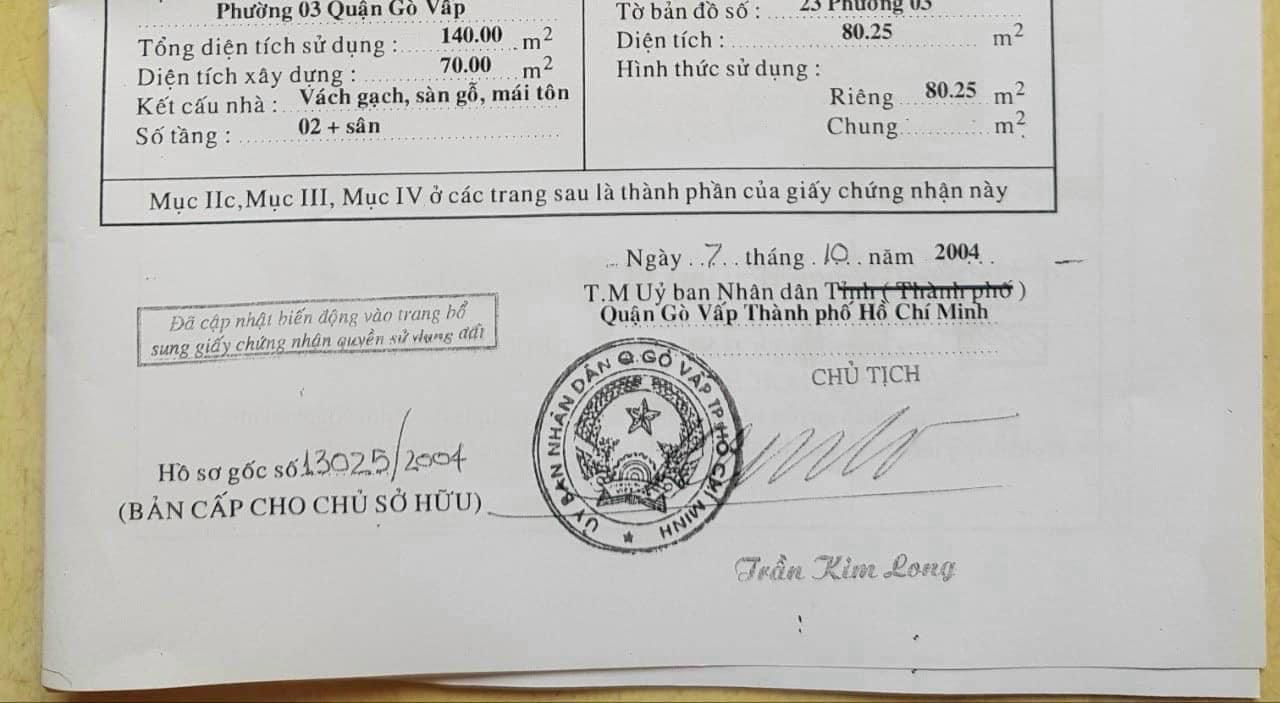 Phường 03 Quận Gò Vấp
Tổng diện tích sử dụng : 140.00 m2
Diện tích xây dựng : 70.00 m2
Kết cấu nhà : Vách gạch, sàn gỗ, mái tôn
Số tầng : 02 + sân
Tờ bản đồ số : 23 Phường 03
Diện tích : 80.25 m2
Hình thức sử dụng :
Riêng 80.25 m2
Chung m2
Mục IIc,Mục III, Mục IV ở các trang sau là thành phần của giấy chứng nhận này
Ngày 7 tháng 10 năm 2004
T.M Uỷ ban Nhân dân Tỉnh ( Thành phố )
Quận Gò Vấp Thành phố Hồ Chí Minh
Đã cập nhật biến động vào trang bổ
sung giấy chứng nhận quyền sử dụng đất
CHỦ TỊCH
ỦY BAN NHÂN DÂN Q. GÒ VẤP TP. HỒ CHÍ MINH
Hồ sơ gốc số 13025/2004
(BẢN CẤP CHO CHỦ SỞ HỮU)
Trần Kim Long